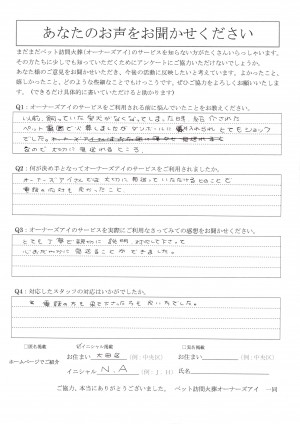 あなたのお声をお聞かせください
まだまだペット訪問火葬(オーナーズアイ)のサービスを知らない方がたくさんいらっしゃいます。
その方たちに少しでも知っていただくためにアンケートにご協力いただけないでしょうか。
あなた様のご意見をお聞かせいただき、今後の活動に反映したいと考えています。よかったこと、
嬉しかったこと、どのような些細なことでもけっこうです。ぜひご協力をよろしくお願いいたし
ます。《できるだけ具体的に書いていただけると助かります》
Q1:オーナーズアイのサービスをご利用される前に悩んでいたことをお教えください。
以前、飼っていた愛犬が亡くなってしまった時、紹介された
ペット霊園で火葬しましたが ダンボールに とてもショック
でした。
なので 大切に 見送れるところ
Q2:何が決め手となってオーナーズアイのサービスをご利用されましたか。
オーナーズアイさんでは 大切に 見送っていただけるとのことで
電話の応対も 良かったこと
Q3:オーナーズアイのサービスを実際にご利用になさってみての感想をお聞かせください。
とても丁寧で親切に 説明 対応して下さって
心おだやかに 見送ることができました。
Q4:対応したスタッフの対応はいかがでしたか。
電話の方も 来て下さった方も 良い方でした。
□匿名掲載 ☑イニシャル掲載 □実名掲載
ホームページでご紹介 お住まい 大田区 (例:中央区) お住まい (例:中央区)
イニシャル N.A (例:J・H) 氏名
ご協力、本当にありがとうございました。 ペット訪問火葬オーナーズアイ 一同